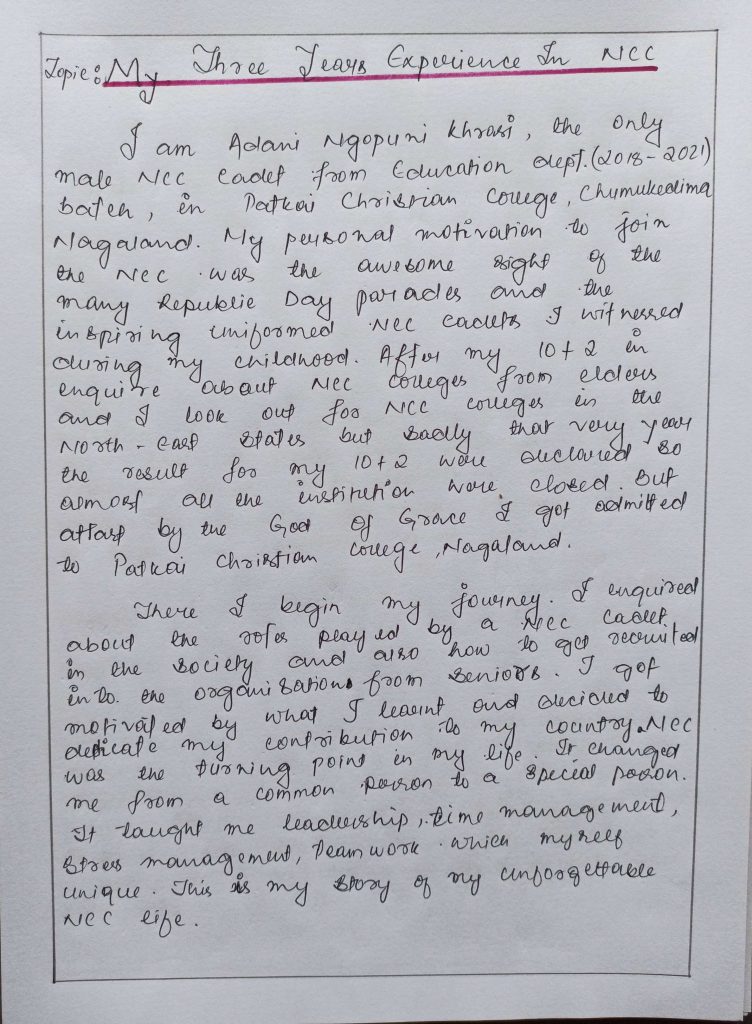 Topic: My Three Years Experience In NCC
I am Adani Ngopuni Khrasi, the only
male NCC Cadet from Education dept. (2018-2021)
batch, in Patkai Christian College, Chumukedima
Nagaland. My personal motivation to join
the NCC was the awesome sight of the
many Republic Day parades and the
inspiring uniformed NCC cadets I witnessed
during my childhood. After my 10+2 in
enquire about NCC colleges from elders
and I look out for NCC colleges in the
North-East States but sadly that very year
the result for my 10+2 were declared so
almost all the institution were closed. But
atlast by the God of Grace I got admitted
to Patkai Christian College, Nagaland.
There I begin my journey. I enquired
about the roles played by a NCC cadet
in the society and also how to get recruited
into the organisation from seniors. I got
motivated by what I learnt and decided to
dedicate my contribution to my country. NCC
was the turning point in my life. It changed
me from a common person to a special person.
It taught me leadership, time management,
stres management, teamwork which myself
unique. This is my story of my unforgettable
NCC life.